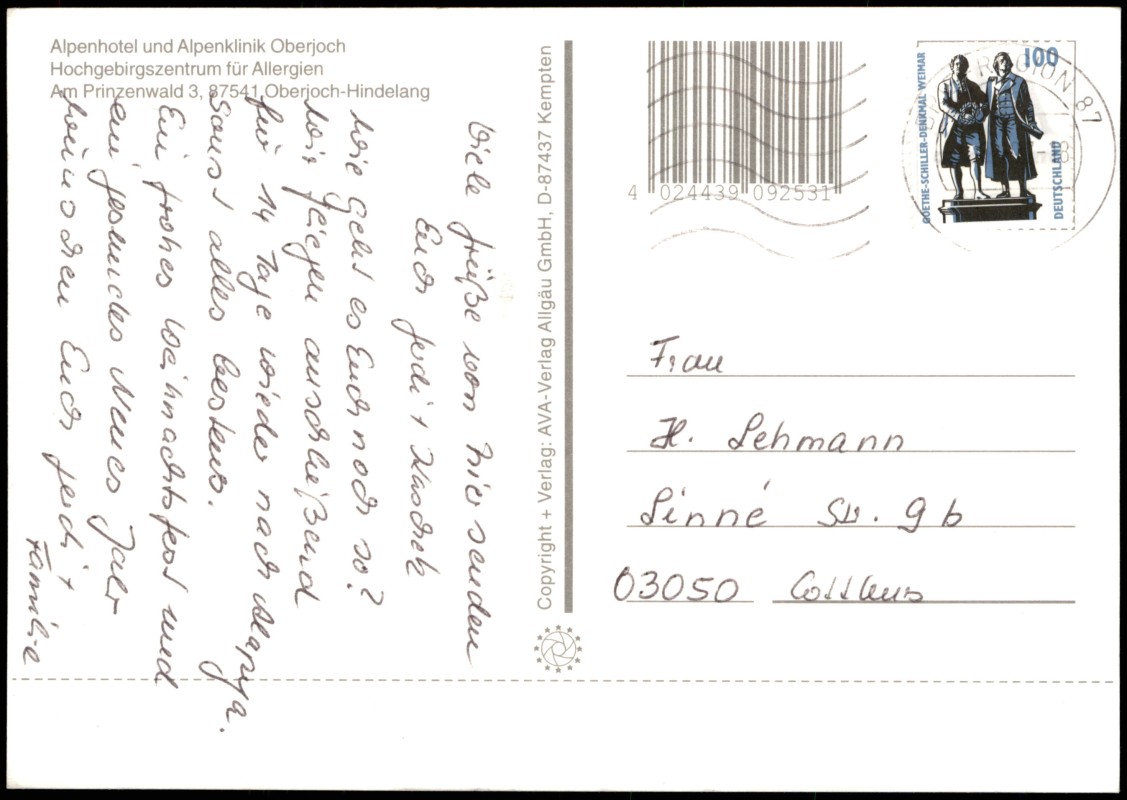 Alpenhotel und Alpenklinik Oberjoch
Hochgebirgszentrum für Allergien
Am Prinzenwald 3, 87541 Oberjoch-Hindelang
Viele grüße von hier senden
Euch gerdi + 
wie geht es Euch noch so?
wir fliegen anschließend
für 14 Tage wieder nach Alanya.
Sonst alles bestens.
Ein frohes Weihnachtsfest und
ein gesundes Neues Jahr
wünschen Euch gerdi +
Familie
Copyright + Verlag: AVA-Verlag Allgäu GmbH, D-87437 Kempten
4 024439 092531
100
GOETHE-SCHILLER-DENKMAL WEIMAR
DEUTSCHLAND
REGION 87
Frau
H. Lehmann
Linné Str. 9b
03050 Cottbus